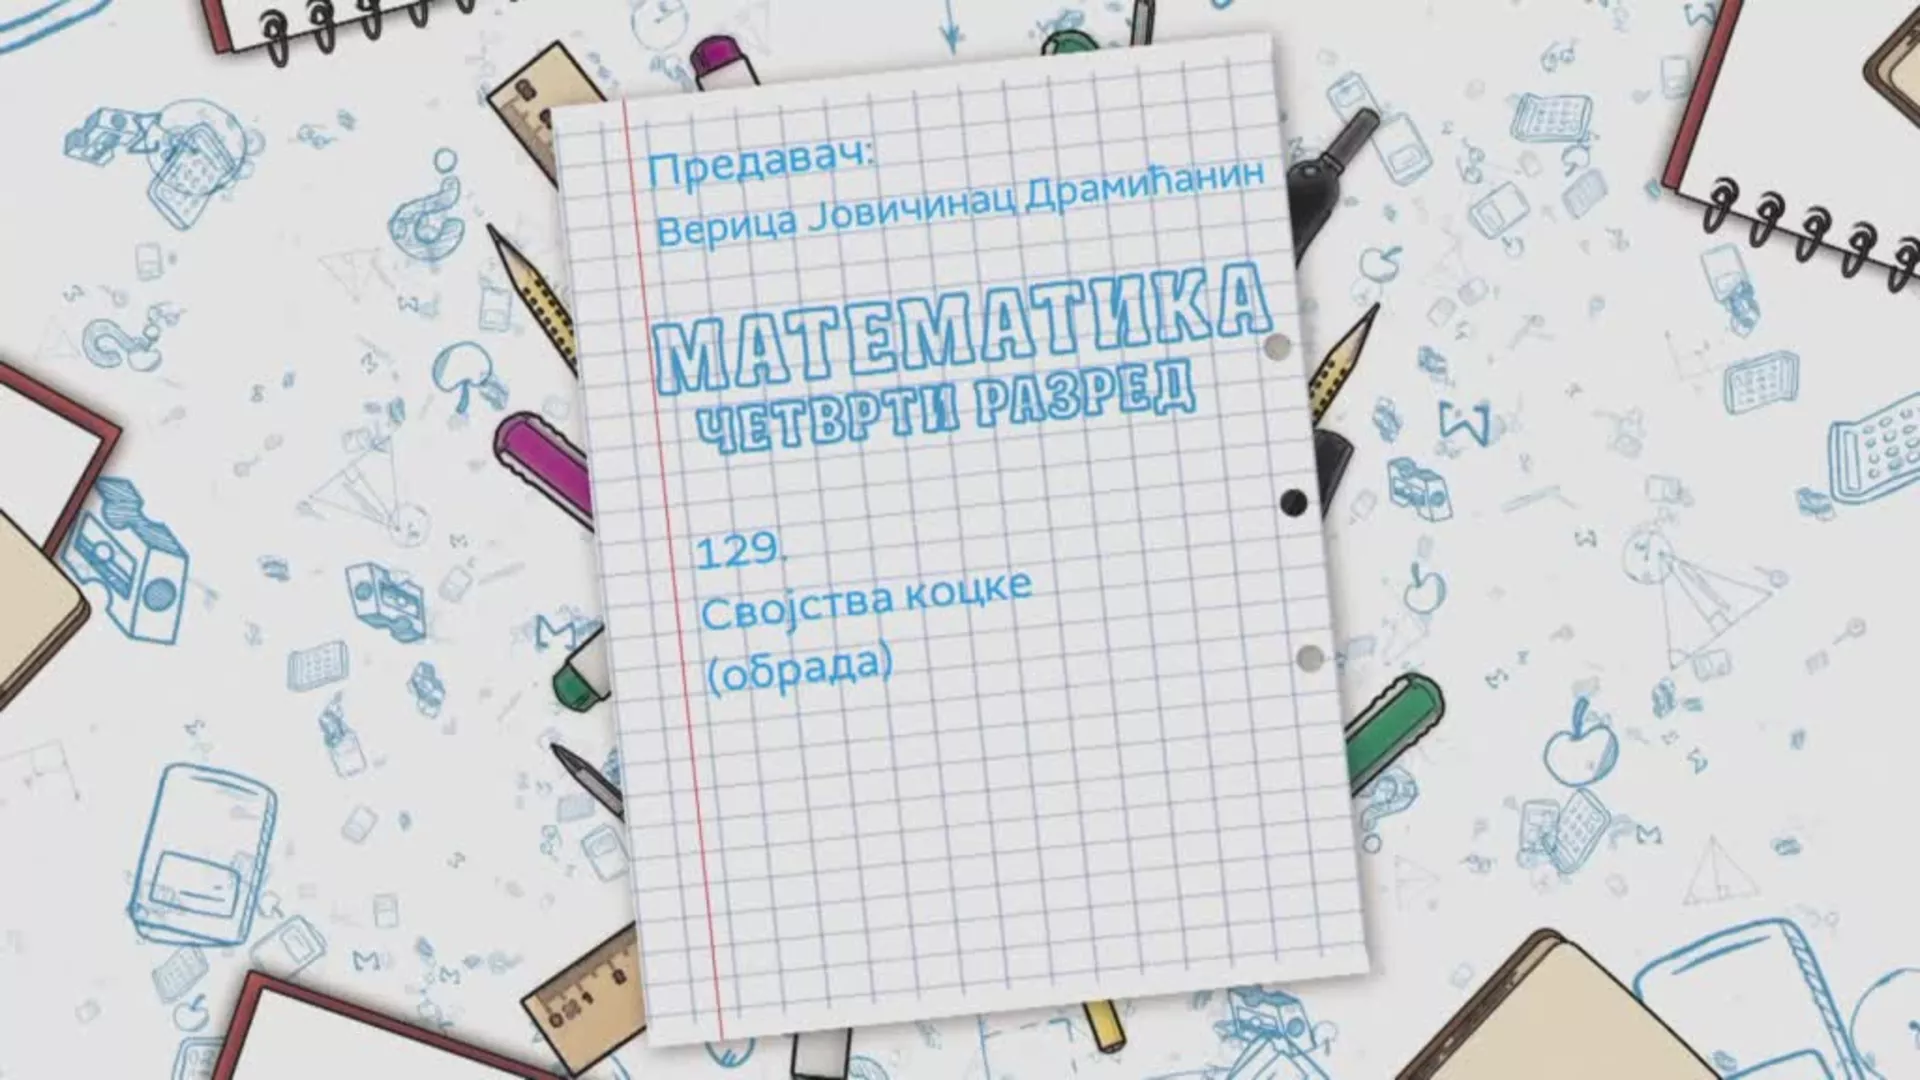 Предавач:
Верица Јовичинац Драмићанин
МАТЕМАТИКА
ЧЕТВРТИ РАЗРЕД
129.
Својства коцке
(обрада)